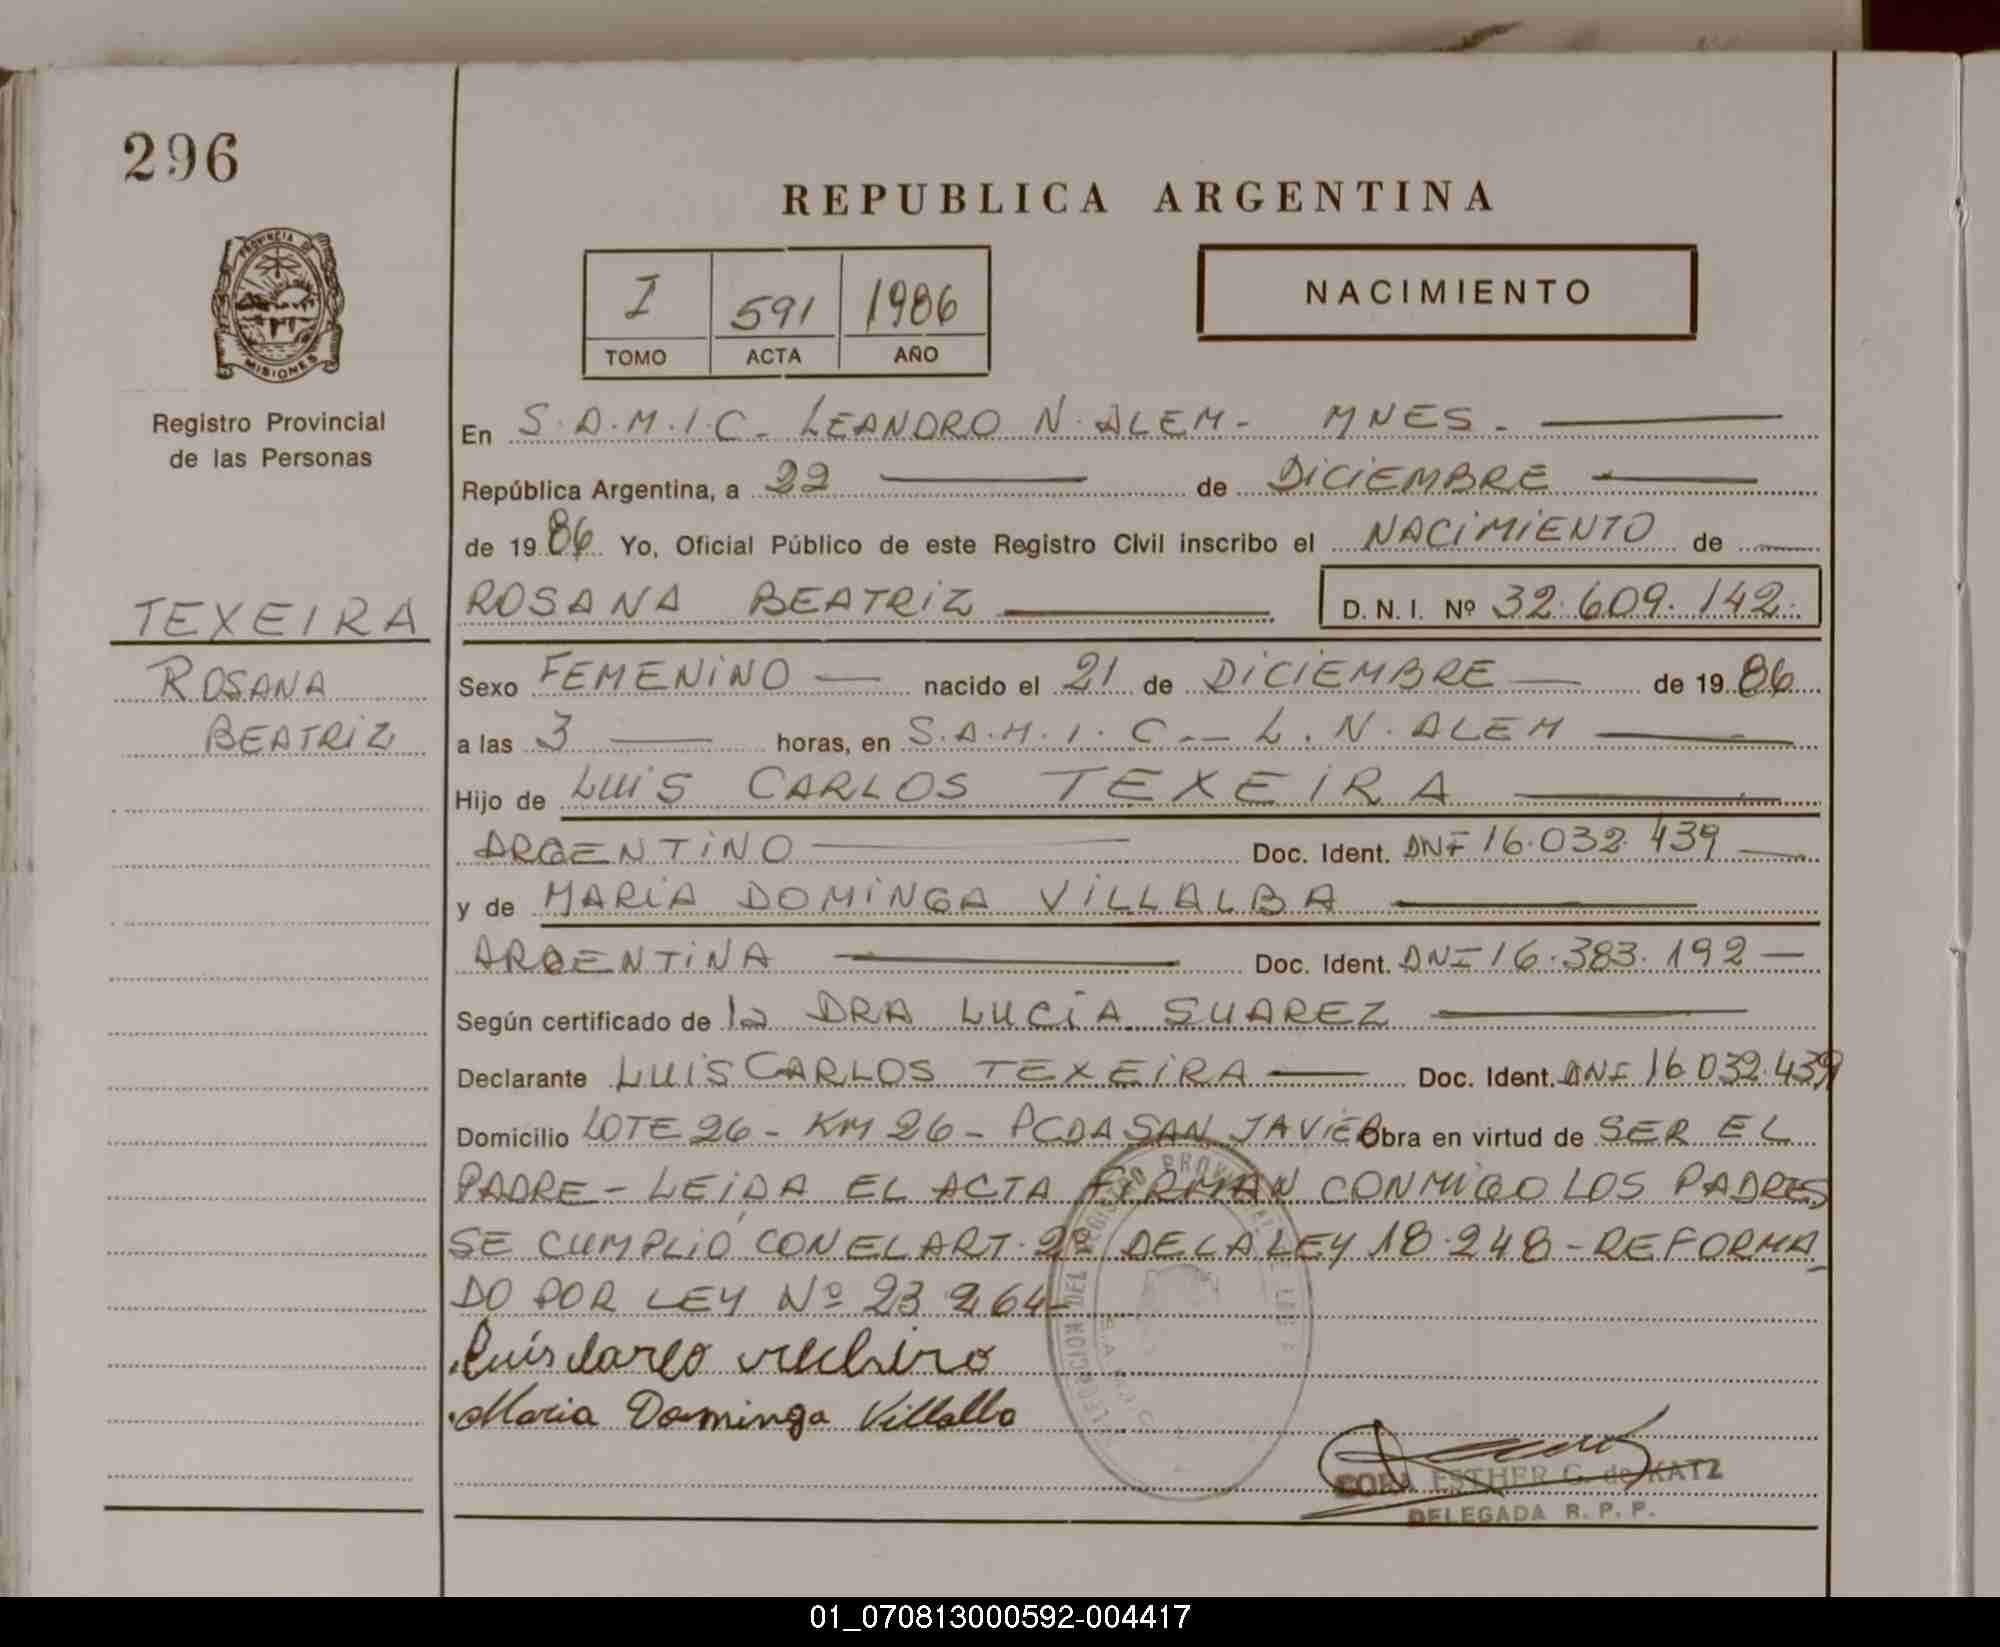 296
REPUBLICA ARGENTINA
PROVINCIA DE
MISIONES
I 591 1986
TOMO ACTA AÑO
NACIMIENTO
Registro Provincial
de las Personas
TEXEIRA
ROSANA
BEATRIZ
En S.A.M.I.C- LEANDRO N. ALEM- MNES.
República Argentina, a 22 de DICIEMBRE
de 1986 Yo, Oficial Público de este Registro Civil inscribo el NACIMIENTO de
ROSANA BEATRIZ D. N. I. Nº 32.609.142.
Sexo FEMENINO nacido el 21 de DICIEMBRE de 1986
a las 3 horas, en S.A.M.I.C-- L.N.ALEM
Hijo de LUIS CARLOS TEXEIRA
ARGENTINO Doc. Ident. DNI 16.032.439
y de MARIA DOMINGA VILLALBA
ARGENTINA Doc. Ident. DNI 16.383.192
Según certificado de la DRA LUCIA SUAREZ
Declarante LUIS CARLOS TEXEIRA Doc. Ident. DNI 16.032.439
Domicilio LOTE 26- KM 26- PCDA SAN JAVIER Obra en virtud de SER EL
PADRE- LEIDA EL ACTA FIRMAN CONMIGO LOS PADRES
SE CUMPLIÓ CON EL ART. 2º DE LA LEY 18.248-REFORMA
DO POR LEY Nº 23 264-
Luis Carlo
Maria Dominga Villalba
ESTHER G. de KATZ
DELEGADA R. P. P.
01_070813000592-004417